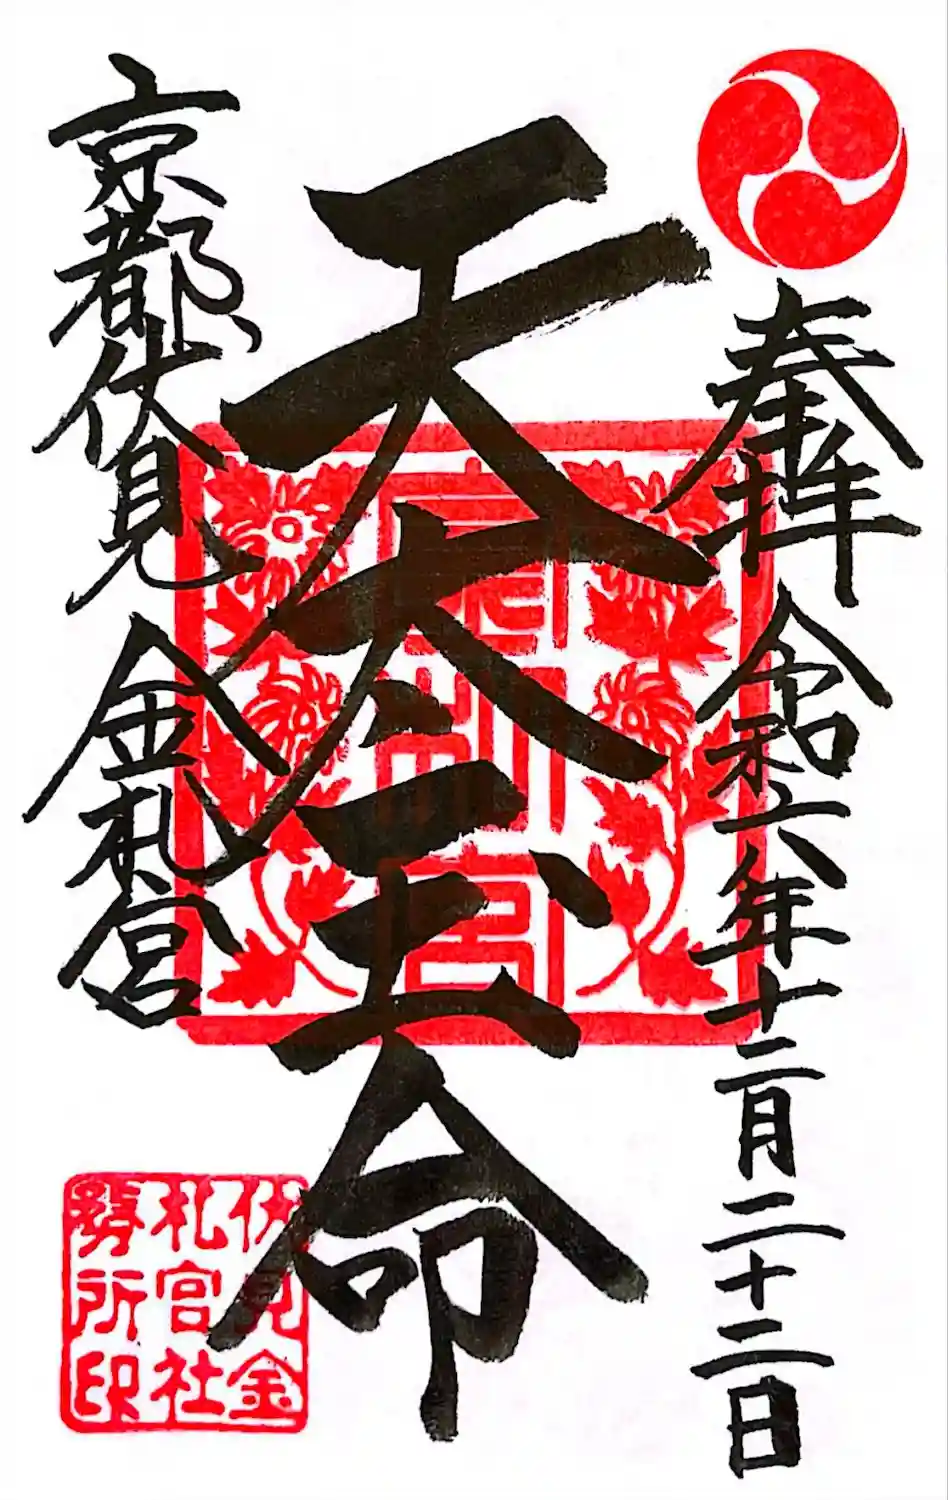 奉拝 令和六年十二月二十二日
天太玉命
京都伏見 金札宮
金札宮
伏見金
札宮社
務所印